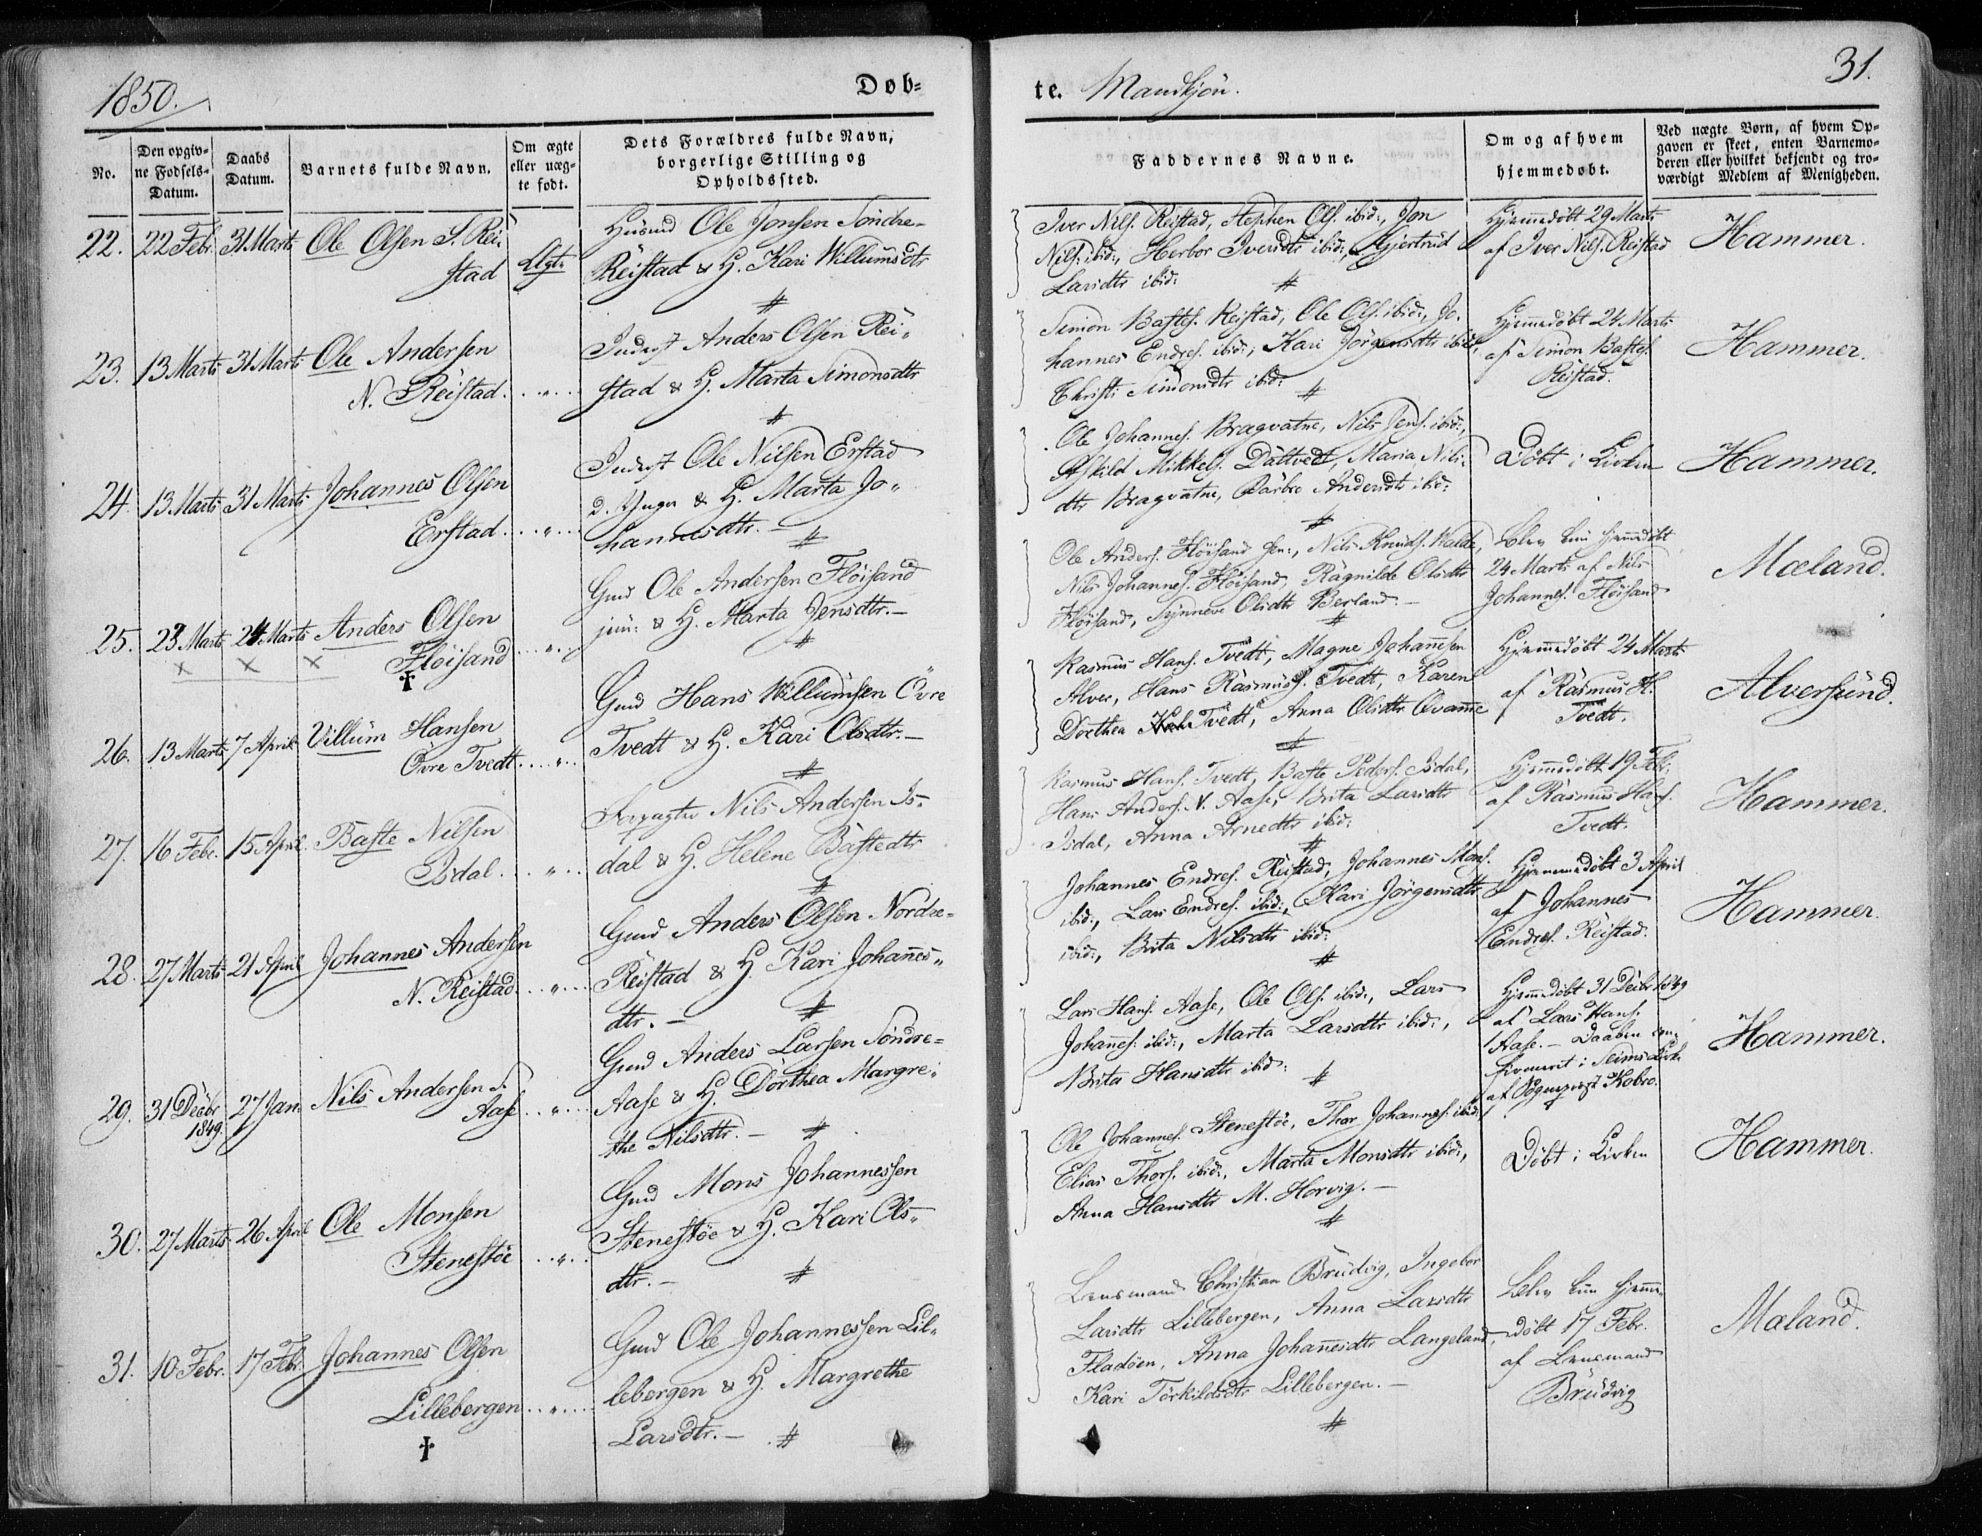 1850.
Døb=
te. Mandkjön.
31.
No.
Den opgiv=
ne Fødsels=
Datum.
Daabs
Datum.
Barnets fulde Navn.
Om ægte
eller uæg=
te født.
Dets Forældres fulde Navn,
borgerlige Stilling og
Opholdssted.
Faddernes Navne.
Om og af hvem
hjemmedøbt.
Ved uægte Børn, af hvem Op=
gaven er skeet, enten Barnemo=
deren eller hvilket bekjendt og tro=
værdigt Medlem af Menigheden.
22. 22 Febr. 31 Marts Ole Olsen S. Rei-
stad
Ægte
Huusmd Ole Jonsen Söndre-
Reistad & H. Kari Willumsdtr
#
Iver Nils. Reistad, Stephen Ols. ibid:, Jon
Nils. ibid:, Herbor Iversdtr ibid:, Gjertrud
Larsdtr ibid:
#
Hjemmedöbt 29 Marts
af Iver Nils. Reistad
Hammer.
23. 13 Marts 31 Marts Ole Andersen
N. Reistad. „
Inderst Anders Olsen Rei-
stad & H. Marta Simonsdtr
#
Simon Bastes. Reistad, Ole Ols. ibid:, Jo-
hannes Endres. ibid:, Kari Jörgensdtr ibid:,
Christi Simonsdtr ibid:
#
Hjemmedöbt 24 Marts
af Simon Bastes.
Reistad.
Hammer.
24. 13 Marts 31 Marts Johannes Olsen
Erstad. „
Inderst Ole Nilsen Erstad
d. Ynger & H. Marta Jo-
hannesdtr. —
#
Ole Johannes. Bragvatne, Nils Jens. ibid:,
Askild Mikkels. Dattvedt, Maria Nils-
dtr Bragvatne, Barbre Andersdtr ibid:
#
Döbt i Kirken
Hammer.
25. 22 Marts 24 Marts Anders Olsen
Flöisand „
x x x
†
Gmd Ole Andersen Flöisand
jun: & H. Marta Jensdtr. —
#
Ole Anders. Flöisand sen:, Nils Knuds. Walde,
Nils Johannes. Flöisand, Ragnilde Olsdtr
Flöisand, Synneve Olsdtr Berland. —
#
Blev kun hjemmedöbt
24 Marts af Nils
Johannes. Flöisand
Mæland.
26. 13 Marts 7 April Villum Hansen
Övre Tvedt. „
Gmd Hans Willumsen Övre
Tvedt & H. Kari Olsdtr. —
#
Rasmus Hans. Tvedt, Magne Johannesen
Alver, Hans Rasmus. Tvedt, Karen
Dorthea Tvedt, Anna Olsdtr Qvamme
#
Hjemmedöbt 24 Marts
af Rasmus H.
Tvedt.
Alversund.
27. 16 Febr. 15 April Baste Nilsen
Isdal. „
Forpagter Nils Andersen Is-
dal & H. Helene Bastedtr
#
Rasmus Hans. Tvedt, Baste Peders. Isdal,
Hans Anders. V. Aase, Brita Larsdtr
Isdal, Anna Arnedtr ibid:
#
Hjemmedöbt 19 Feb:
af Rasmus Hans.
Tvedt.
Hammer.
28. 27 Marts 21 April Johannes Andersen
N. Reistad „
Gmd Anders Olsen Nordre-
Reistad & H. Kari Johannes-
dtr. —
#
Johannes Endres. Reistad, Johannes Mons.
ibid:, Lars Endres. ibid:, Kari Jörgensdtr
ibid:, Brita Nilsdtr ibid:
#
Hjemmedöbt 3 April
af Johannes
Endres. Reistad.
Hammer.
29. 31 Decbr 1849. 27 Jan. Nils Andersen S.
Aase „
Gmd Anders Larsen Söndre-
Aase & H. Dorthea Margre-
the Nilsdtr. —
#
Lars Hans. Aase, Ole Ols. ibid:, Lars
Johannes. ibid:, Marta Larsdtr ibid:,
Brita Hansdtr ibid:
#
Hjemmedöbt 31 Decbr 1849
af Lars Hans.
Aase. — Daaben con-
firmeret i Seims Kirke
af Sognepræst Kobro.
Hammer.
30. 27 Marts 26 April Ole Monsen
Stenestöe „
Gmd Mons Johannessen
Stenestöe & H. Kari Ols-
dtr. —
#
Ole Johannes. Stenestöe, Thor Johannes. ibid:
Elias Thors. ibid:, Marta Monsdtr ibid:,
Anna Hansdtr M. Horvig. —
#
Döbt i Kirken
Hammer.
31. 10 Febr. 17 Febr Johannes Olsen
Lillebergen „
†
Gmd Ole Johannessen Lil-
lebergen & H. Margrethe
Larsdtr. —
#
Lensmand Christian Brudvig, Ingebor
Larsdtr Lillebergen, Anna Larsdtr
Fladöen, Anna Johannesdtr Langeland,
Kari Torkildsdtr Lillebergen. —
#
Blev kun hjemme-
döbt 17 Febr.
af Lensmand
Brudvig
Mæland.